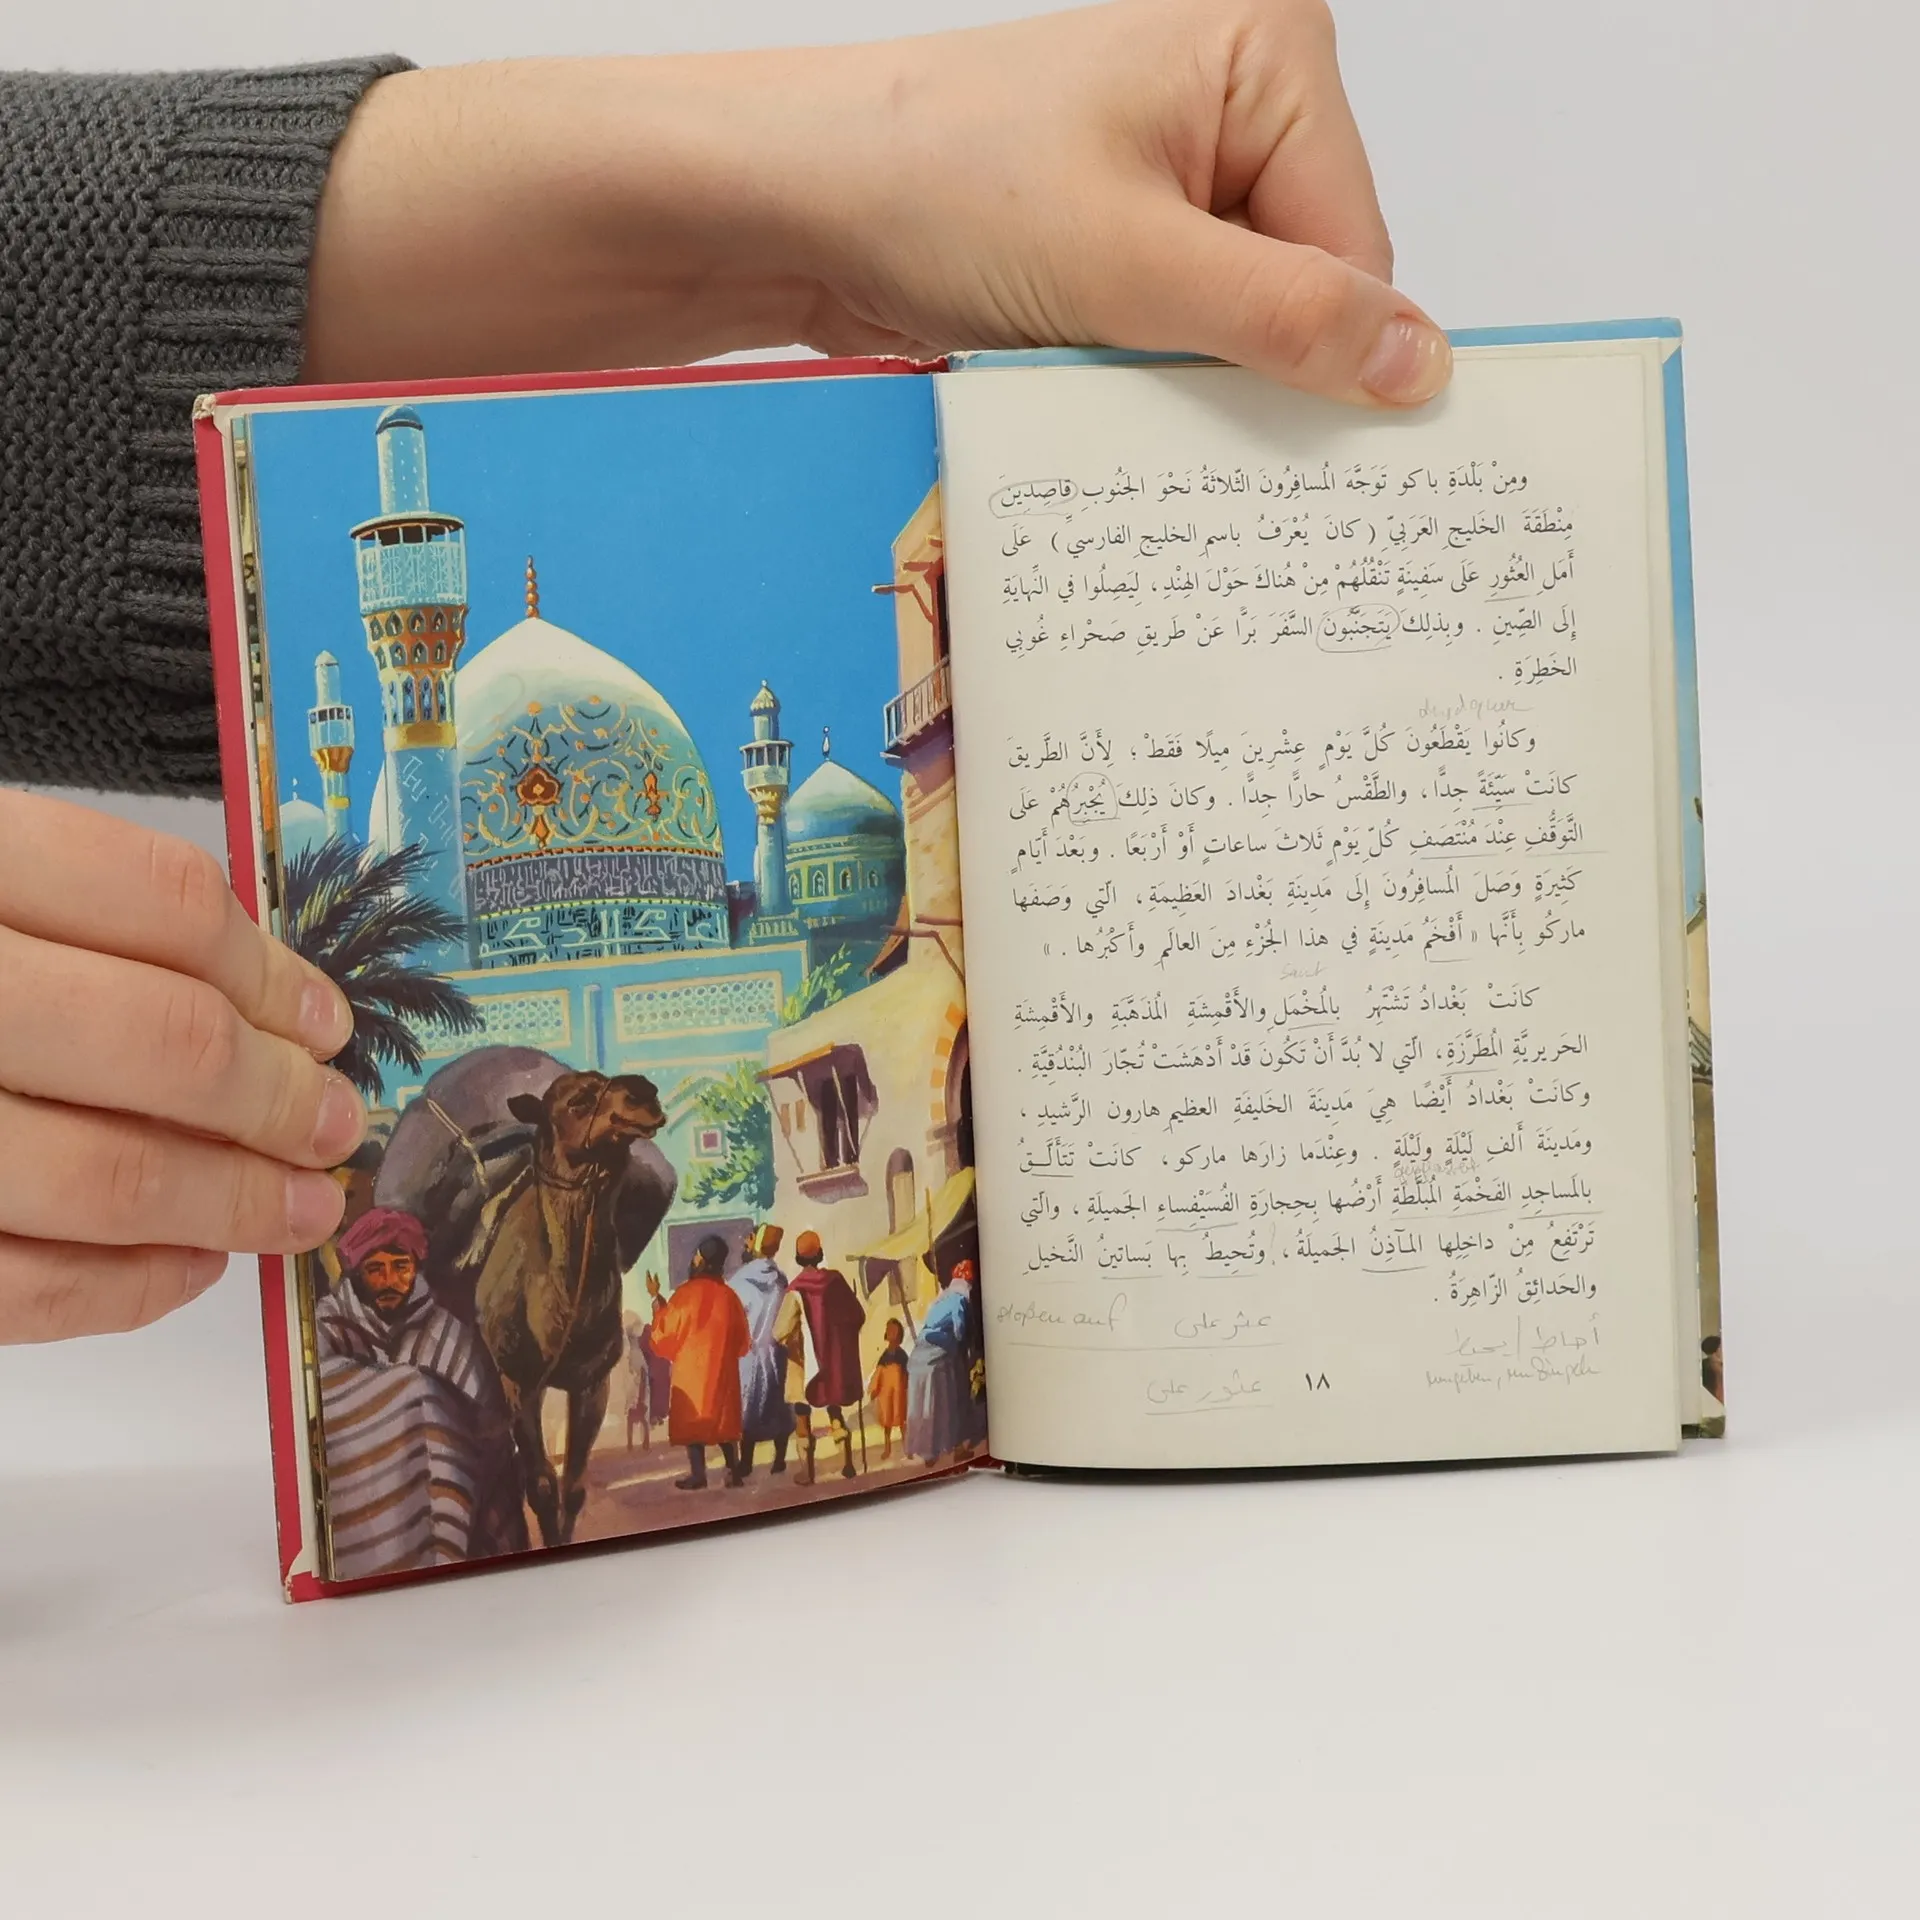 ومِنْ بَلْدَةِ باكو تَوَجَّهَ المُسافِرُونَ الثّلاثَةُ نَحْوَ الجَنُوبِ قاصِدِينَ
مِنْطَقَةَ الخَليجِ العَرَبِيِّ ( كانَ يُعْرَفُ باسمِ الخليجِ الفارسيِّ ) عَلَى
أَمَلِ العُثُورِ عَلَى سَفِينَةٍ تَنْقُلُهُمْ مِنْ هُناكَ حَوْلَ الهِنْدِ ، لِيَصِلُوا في النِّهايَةِ
إِلَى الصِّينِ . وبِذلِكَ يَتَجَنَّبُونَ السَّفَرَ بَرًّا عَنْ طَريقِ صَحْراءِ غُوبِي
الخَطِرَةِ .
وكانُوا يَقْطَعُونَ كُلَّ يَوْمٍ عِشْرِينَ مِيلًا فَقَطْ ؛ لِأَنَّ الطَّريقَ
كانَتْ سَيِّئَةً جِدًّا ، والطَّقْسُ حارًّا جِدًّا . وكانَ ذلِكَ يُجْبِرُهُمْ عَلَى
التَّوَقُّفِ عِنْدَ مُنْتَصَفِ كُلِّ يَوْمٍ ثَلاثَ ساعاتٍ أَوْ أَرْبَعًا . وبَعْدَ أَيّامٍ
كَثِيرَةٍ وَصَلَ المُسافِرُونَ إِلَى مَدِينَةِ بَغْدادَ العَظِيمَةِ ، الّتي وَصَفَها
ماركُو بِأَنَّها « أَفْخَمُ مَدِينَةٍ في هذا الجُزْءِ مِنَ العالَمِ وأَكْبَرُها . »
كانَتْ بَغْدادُ تَشْتَهِرُ بالمُخْمَلِ والأَقْمِشَةِ المُذَهَّبَةِ والأَقْمِشَةِ
الحَريريَّةِ المُطَرَّزَةِ ، الّتي لا بُدَّ أَنْ تَكُونَ قَدْ أَدْهَشَتْ تُجّارَ البُنْدُقِيَّةِ .
وكانَتْ بَغْدادُ أَيْضًا هِيَ مَدِينَةَ الخَليفَةِ العظيمِ هارون الرَّشيدِ ،
ومَدينَةَ أَلفِ لَيْلَةٍ ولَيْلَةٍ . وعِنْدَما زارَها ماركو ، كانَتْ تَتَأَلَّـقُ
بالمَساجِدِ الفَخْمَةِ المُبَلَّطَةِ أَرْضُها بِحِجارَةِ الفُسَيْفِساءِ الجَميلَةِ ، والّتي
تَرْتَفِعُ مِنْ داخِلِها المَآذِنُ الجَميلَةُ ، وتُحِيطُ بِها بَساتينُ النَّخيلِ
والحَدائِقُ الزّاهِرَةُ .
عثر على stoßen auf
أحاط / يحيط
عثور على
١٨